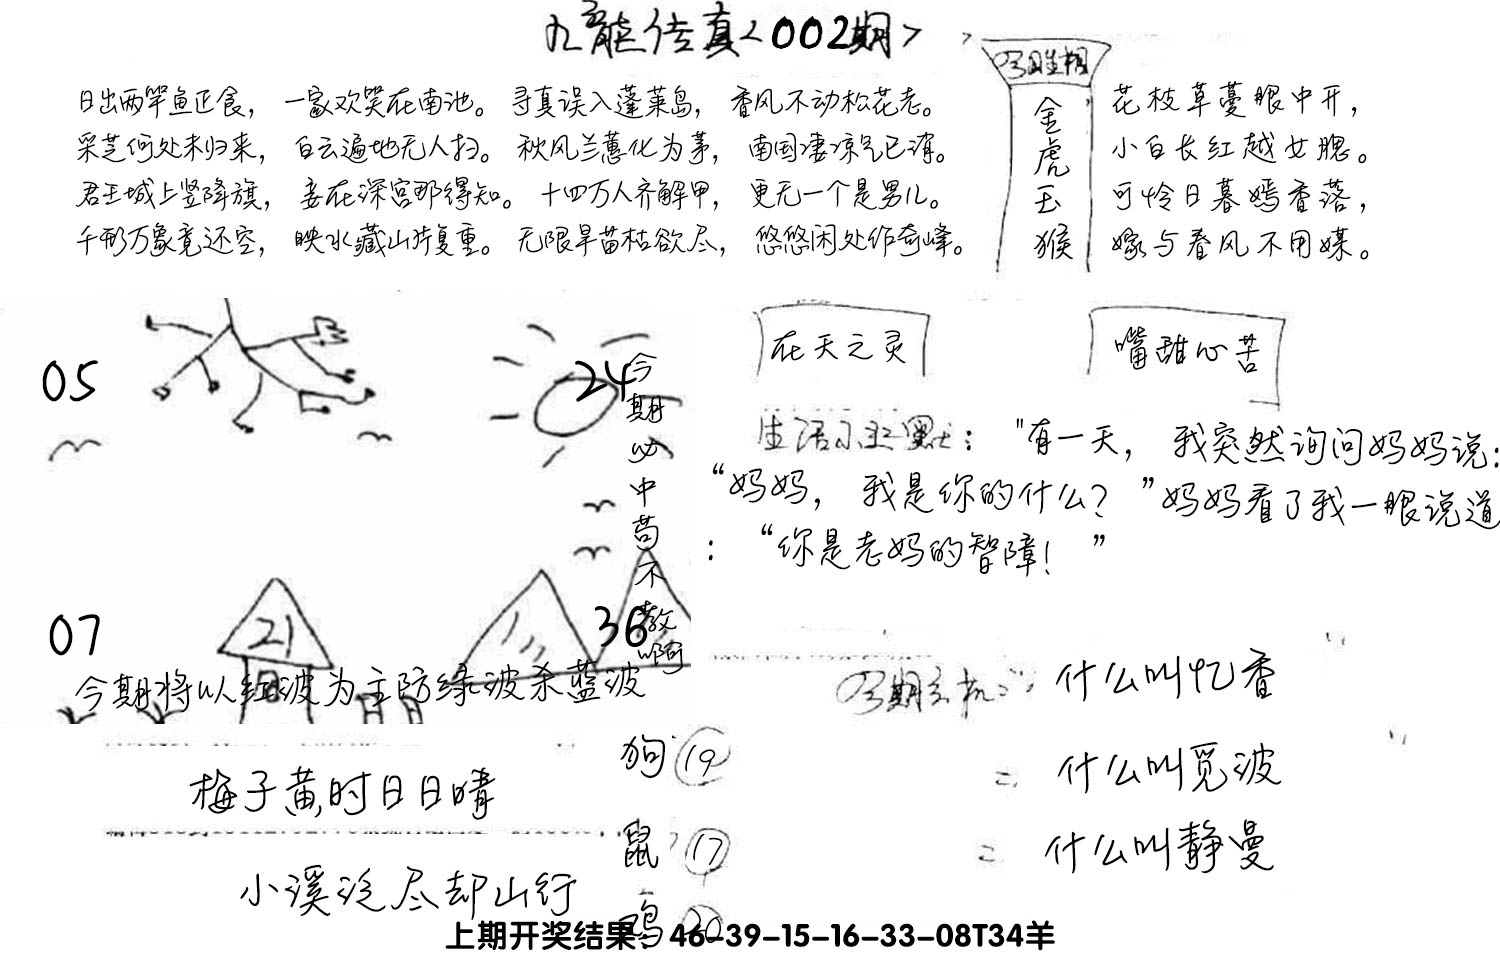 九龙传真<002期>
日出两竿鱼正食， 一家欢笑在南池。 寻真误入蓬莱岛， 香风不动松花老。
采芝何处未归来， 白云遍地无人扫。 秋风兰蕙化为茅， 南国凄凉气已消。
君王城上竖降旗， 妾在深宫那得知。 十四万人齐解甲， 更无一个是男儿。
千形万象竟还空， 映水藏山片复重。 无限旱苗枯欲尽， 悠悠闲处作奇峰。
今期生相
金虎玉猴
花枝草蔓眼中开，
小白长红越女腮。
可怜日暮嫣香落，
嫁与春风不用媒。
05
24
07
21
36
今期必中苟不教啊
今期将以红波为主防绿波杀蓝波
在天之灵
嘴甜心苦
生活小幽默："有一天， 我突然询问妈妈说：
“妈妈， 我是你的什么？”妈妈看了我一眼说道
：“你是老妈的智障！”
今期玄机：什么叫忆香
= 什么叫觅波
= 什么叫静曼
梅子黄时日日晴
小溪泛尽却山行
狗 19
鼠 17
鸡 20
上期开奖结果：46-39-15-16-33-08T34羊